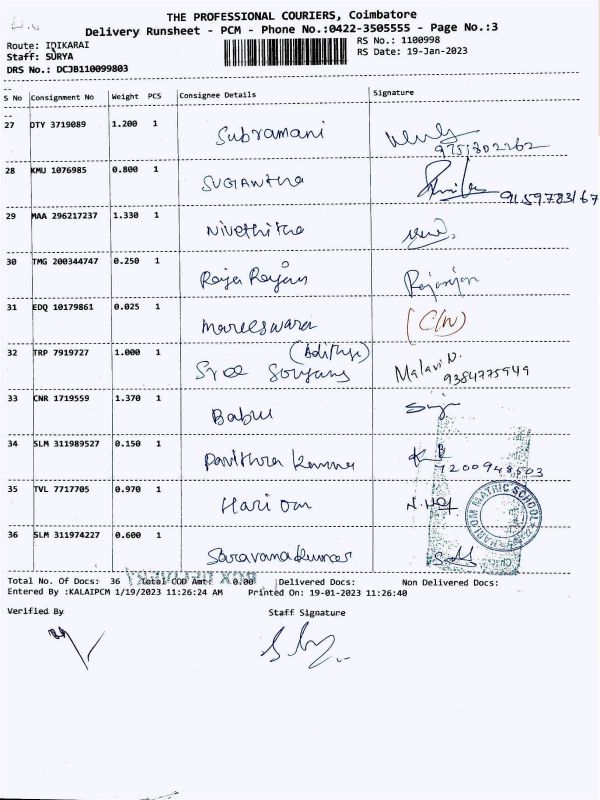 THE PROFESSIONAL COURIERS, Coimbatore
Delivery Runsheet - PCM - Phone No.:0422-3505555 - Page No.:3
Route: IDIKARAI
RS No.: 1100998
Staff: SURYA
RS Date: 19-Jan-2023
DRS No.: DCJB110099803
S No Consignment No Weight PCS Consignee Details Signature
27 DTY 3719089 1.200 1 Subramani
9751802262
28 KMU 1076985 0.800 1 SUGANTHA
9159783167
29 MAA 296217237 1.330 1 Nivethitha
30 TMG 200344747 0.250 1 Raja Rajan Rajarajan
31 EDQ 10179861 0.025 1 Mareeswara (C/N)
32 TRP 7919727 1.000 1 Sree (Adithya) Malavi N.
9384775949
33 CNR 1719559 1.370 1 Babu
34 SLM 311989527 0.150 1 Pavithra
7200948503
35 TVL 7717705 0.970 1 Hari Om
HARI OM MATRIC SCHOOL
36 SLM 311974227 0.600 1 Saravanakumar
Total No. Of Docs: 36 Total COD Amt: 0.00 Delivered Docs: Non Delivered Docs:
Entered By :KALAIPCM 1/19/2023 11:26:24 AM Printed On: 19-01-2023 11:26:40
Verified By Staff Signature